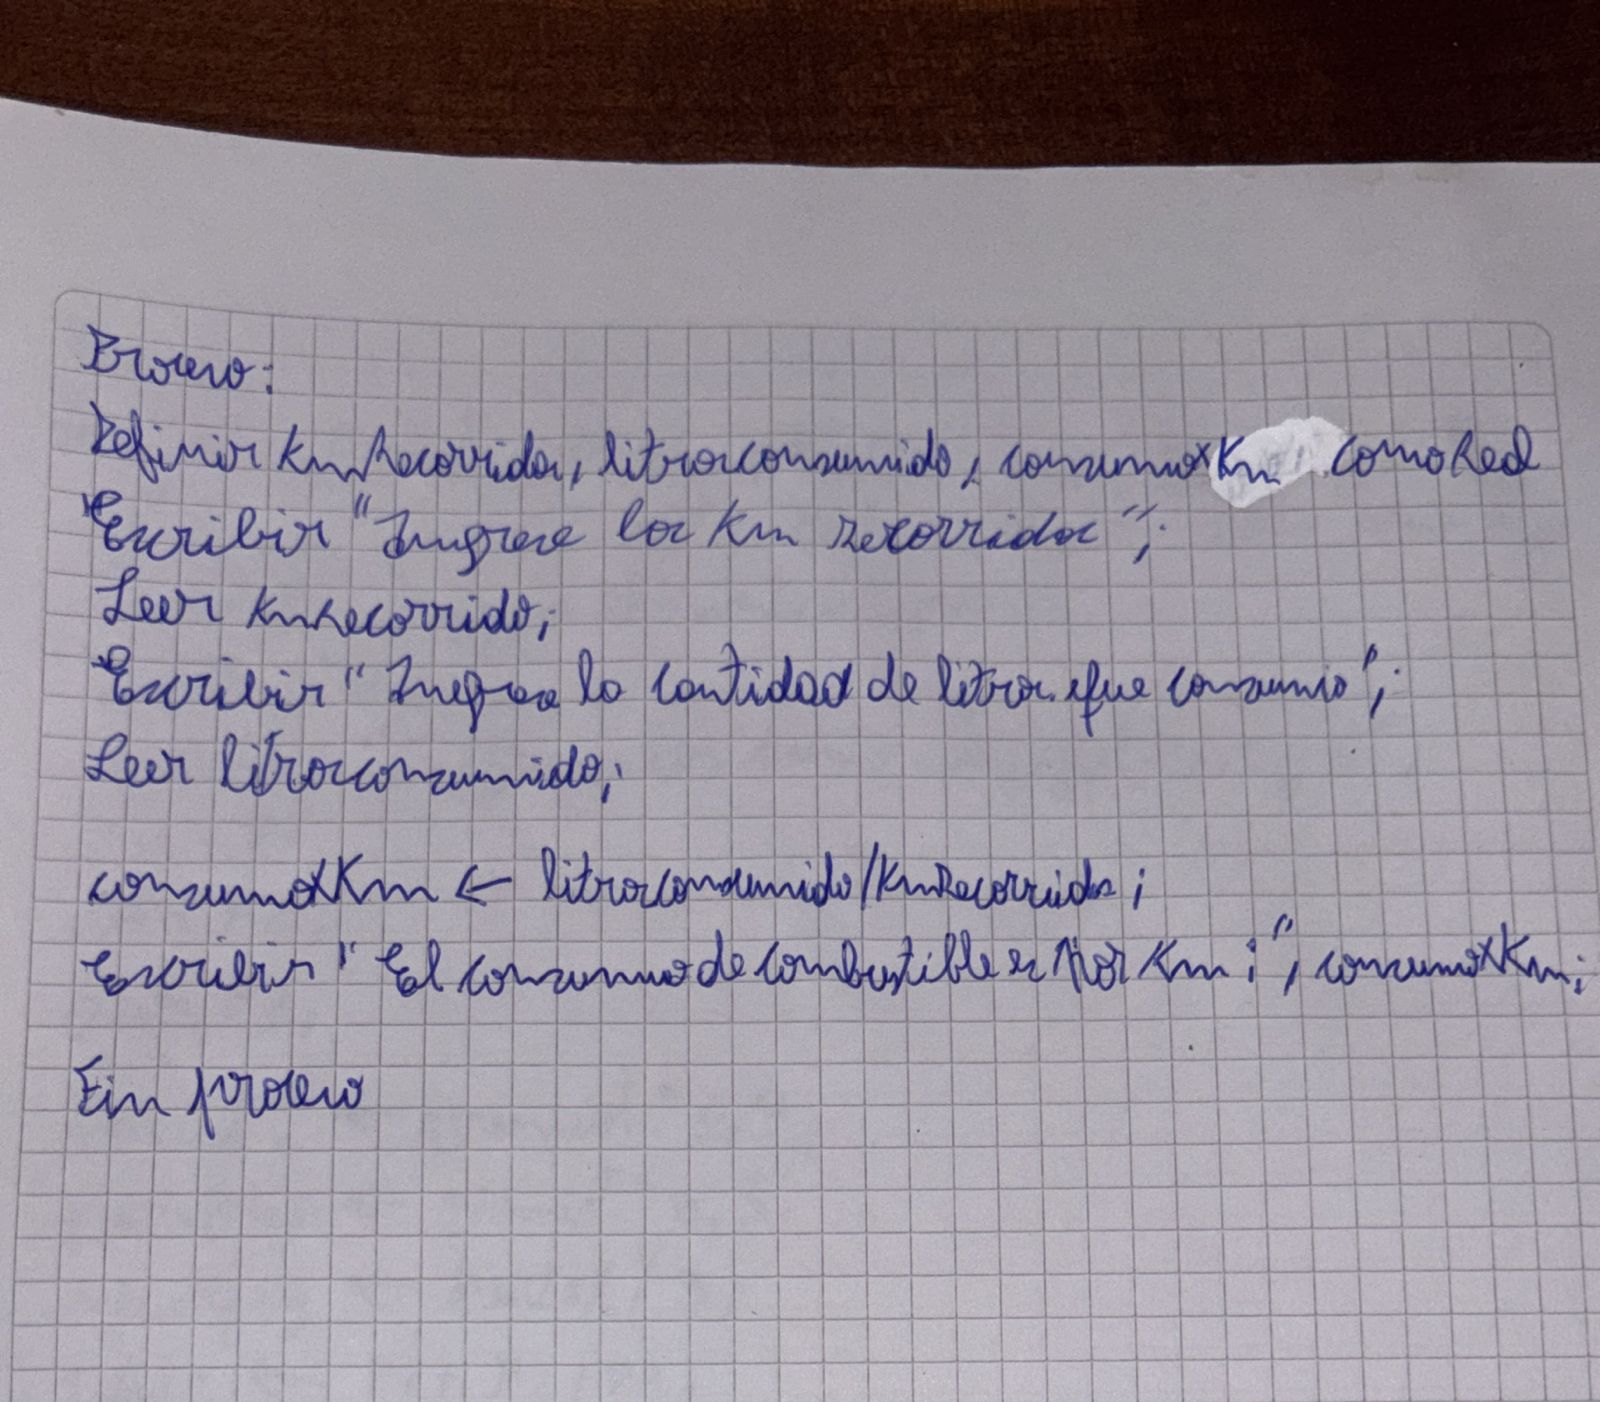 Proceso:
Definir KmRecorridos, litrosconsumido, consumoxKm como Real
Escribir "Ingrese los Km recorridos";
Leer KmRecorrido;
Escribir "Ingrese la cantidad de litros que consumio";
Leer litrosconsumido;
consumoxKm ← litrosconsumido/KmRecorridos;
Escribir "El consumo de combustible es por Km:", consumoxKm;
Fin proceso